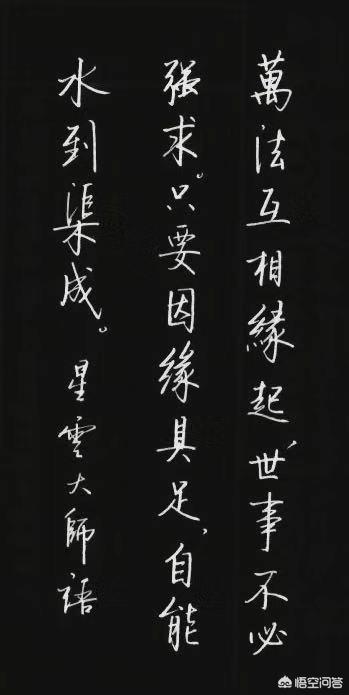 萬法互相緣起,世事不必
强求。只要因緣具足,自能
水到渠成。星雲大師語
悟空问答